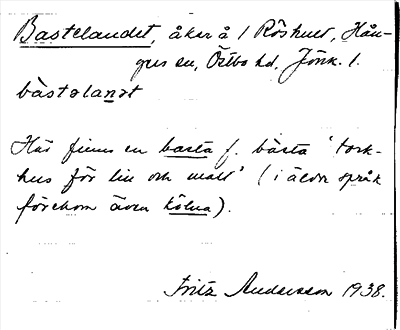 Bastelandet, åker å 1 Röshult, Hån-
ger sn, Östbo hd, Jönk. l.
bàstəlanət
Här finns en basta f. bàsta 'tork-
hus för lin och malt' (i äldre språk
förekom även kölna).
Fritz Andersson 1938.